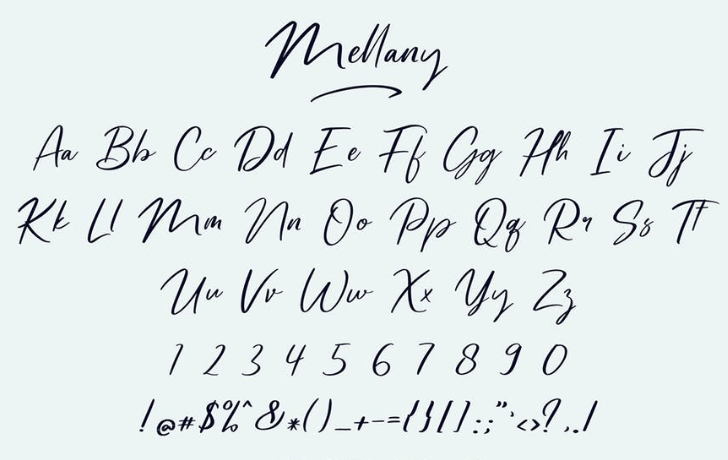 Mellany
Aa Bb Cc Dd Ee Ff Gg Hh Ii Jj
Kk Ll Mm Nn Oo Pp Qq Rr Ss Tt
Uu Vv Ww Xx Yy Zz
1 2 3 4 5 6 7 8 9 0
!@#$%^&*()_+-={}[]:;"'<>?,./